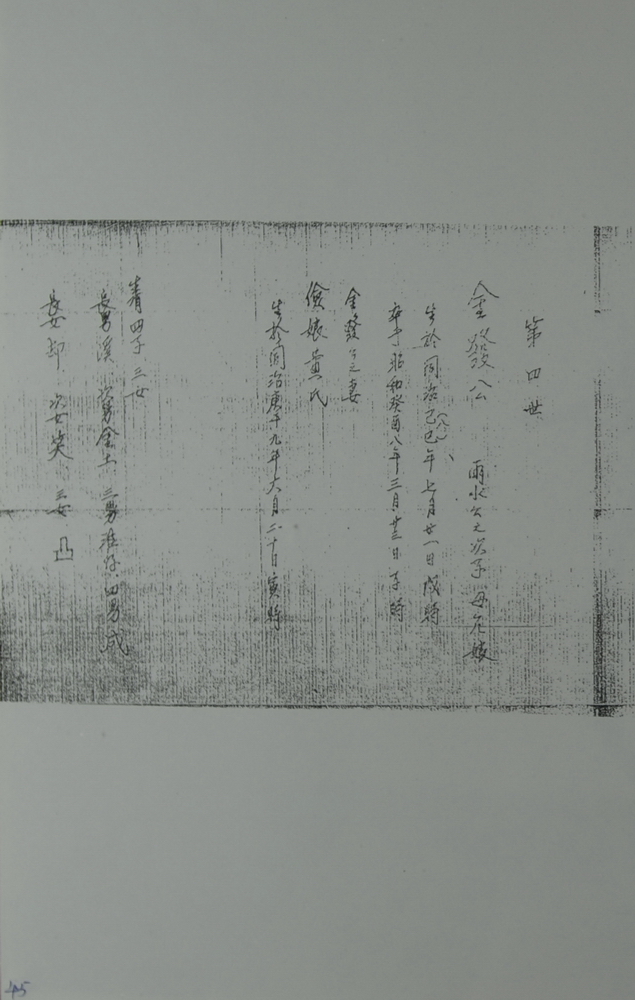 第四世
金發公 雨水公之次子 母尤娘
生於同治己巳(八)年七月廿一日戌時
卒于昭和癸酉八年三月廿三日子時
金發公之妻
儉娘黃氏
生於同治庚午九年六月二十日寅時
育四子三女
長男溪 次男金土 三男 四男成
長女却 次女笑 三女凸
45